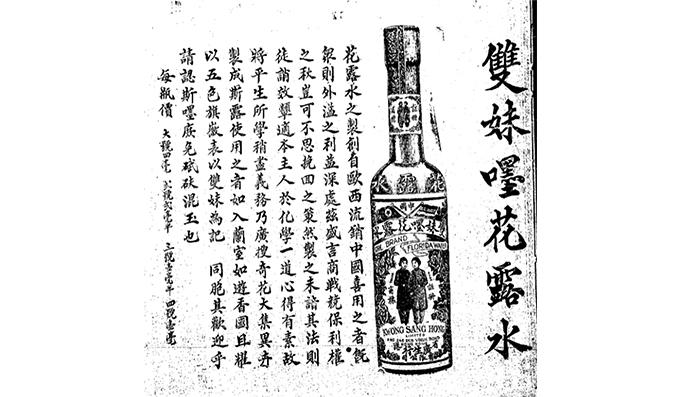 雙妹嚜花露水
花露水之製創自歐西流銷中國喜用之者旣
衆則外溢之利益深處茲盛言商戰競保利權
之秋豈可不思挽回之策然製之未諳其法則
徒誚效顰適本主人於化學一道心得有素故
將平生所學稍盡義務乃廣搜奇花大集異卉
製成斯露使用之者如入蘭室如遊香國且耀
以五色旗徽表以雙妹為記 同胞其歡迎乎
請認斯嚜庶免碔砆混玉也
每瓶價 大號四毫 弍號弍毫半 三號壹毫半 四號壹毫
妹嚜花露
BRAND FLORIDA WATER
KWONG SANG HONG
LIMITED